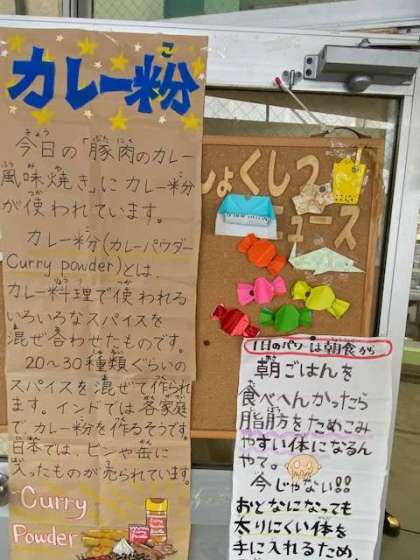 カレー粉
今日の「豚肉のカレー
風味焼き」にカレー粉
が使われています。
カレー粉(カレーパウダー
Curry powder)とは、
カレー料理で使われる
いろいろなスパイスを
混ぜ合わせたものです。
20〜30種類ぐらいの
スパイスを混ぜて作られ
ます。インドでは各家庭
で、カレー粉を作るそうです。
日本では、ビンや缶に
入ったものが売られています。
Curry
Powder
しょくしつ
ニュース
1日のパワーは朝食から
朝ごはんを
食べへんかったら
脂肪をためこみ
やすい体になるん
やて。
今じゃない!!
おとなになっても
太りにくい体を
手に入れるため